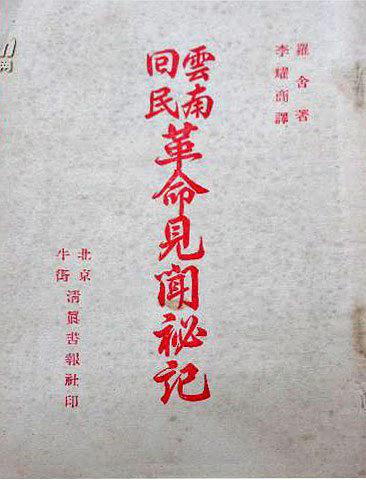 羅舍著
李耀商譯
雲南
回民
革命見聞祕記
北京
牛街
清眞書報社印